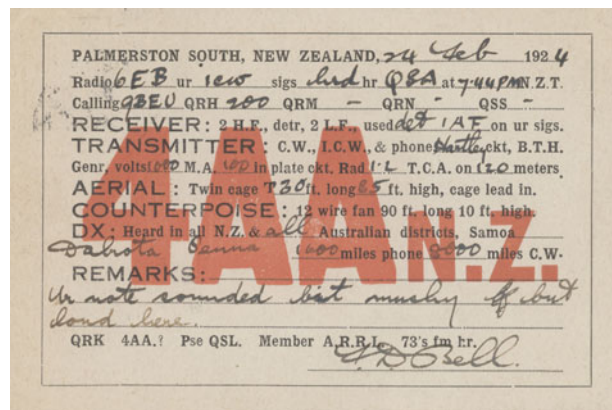 PALMERSTON SOUTH, NEW ZEALAND, 24 Feb 1924
Radio 6EB ur icw sigs hrd hr QSA at 7.44PM N.Z.T.
Calling 9BEU QRH 200 QRM - QRN - QSS -
RECEIVER: 2 H.F., detr, 2 L.F., used det 1 AF on ur sigs.
TRANSMITTER: C.W., I.C.W., & phone Hartley ckt, B.T.H.
Genr, volts 1000 M.A. 100 in plate ckt, Rad 1.2 T.C.A. on 120 meters
AERIAL: Twin cage T 30 ft. long 65 ft. high, cage lead in.
COUNTERPOISE: 12 wire fan 90 ft. long 10 ft. high.
DX: Heard in all N.Z. & all Australian districts, Samoa
Dakota Penna 1600 miles phone 8000 miles C.W.
4AA N.Z.
REMARKS:
Ur note sounded bit mushy but
loud here.
QRK 4AA.? Pse QSL. Member A.R.R.L. 73's fm hr.
F. D. Bell.